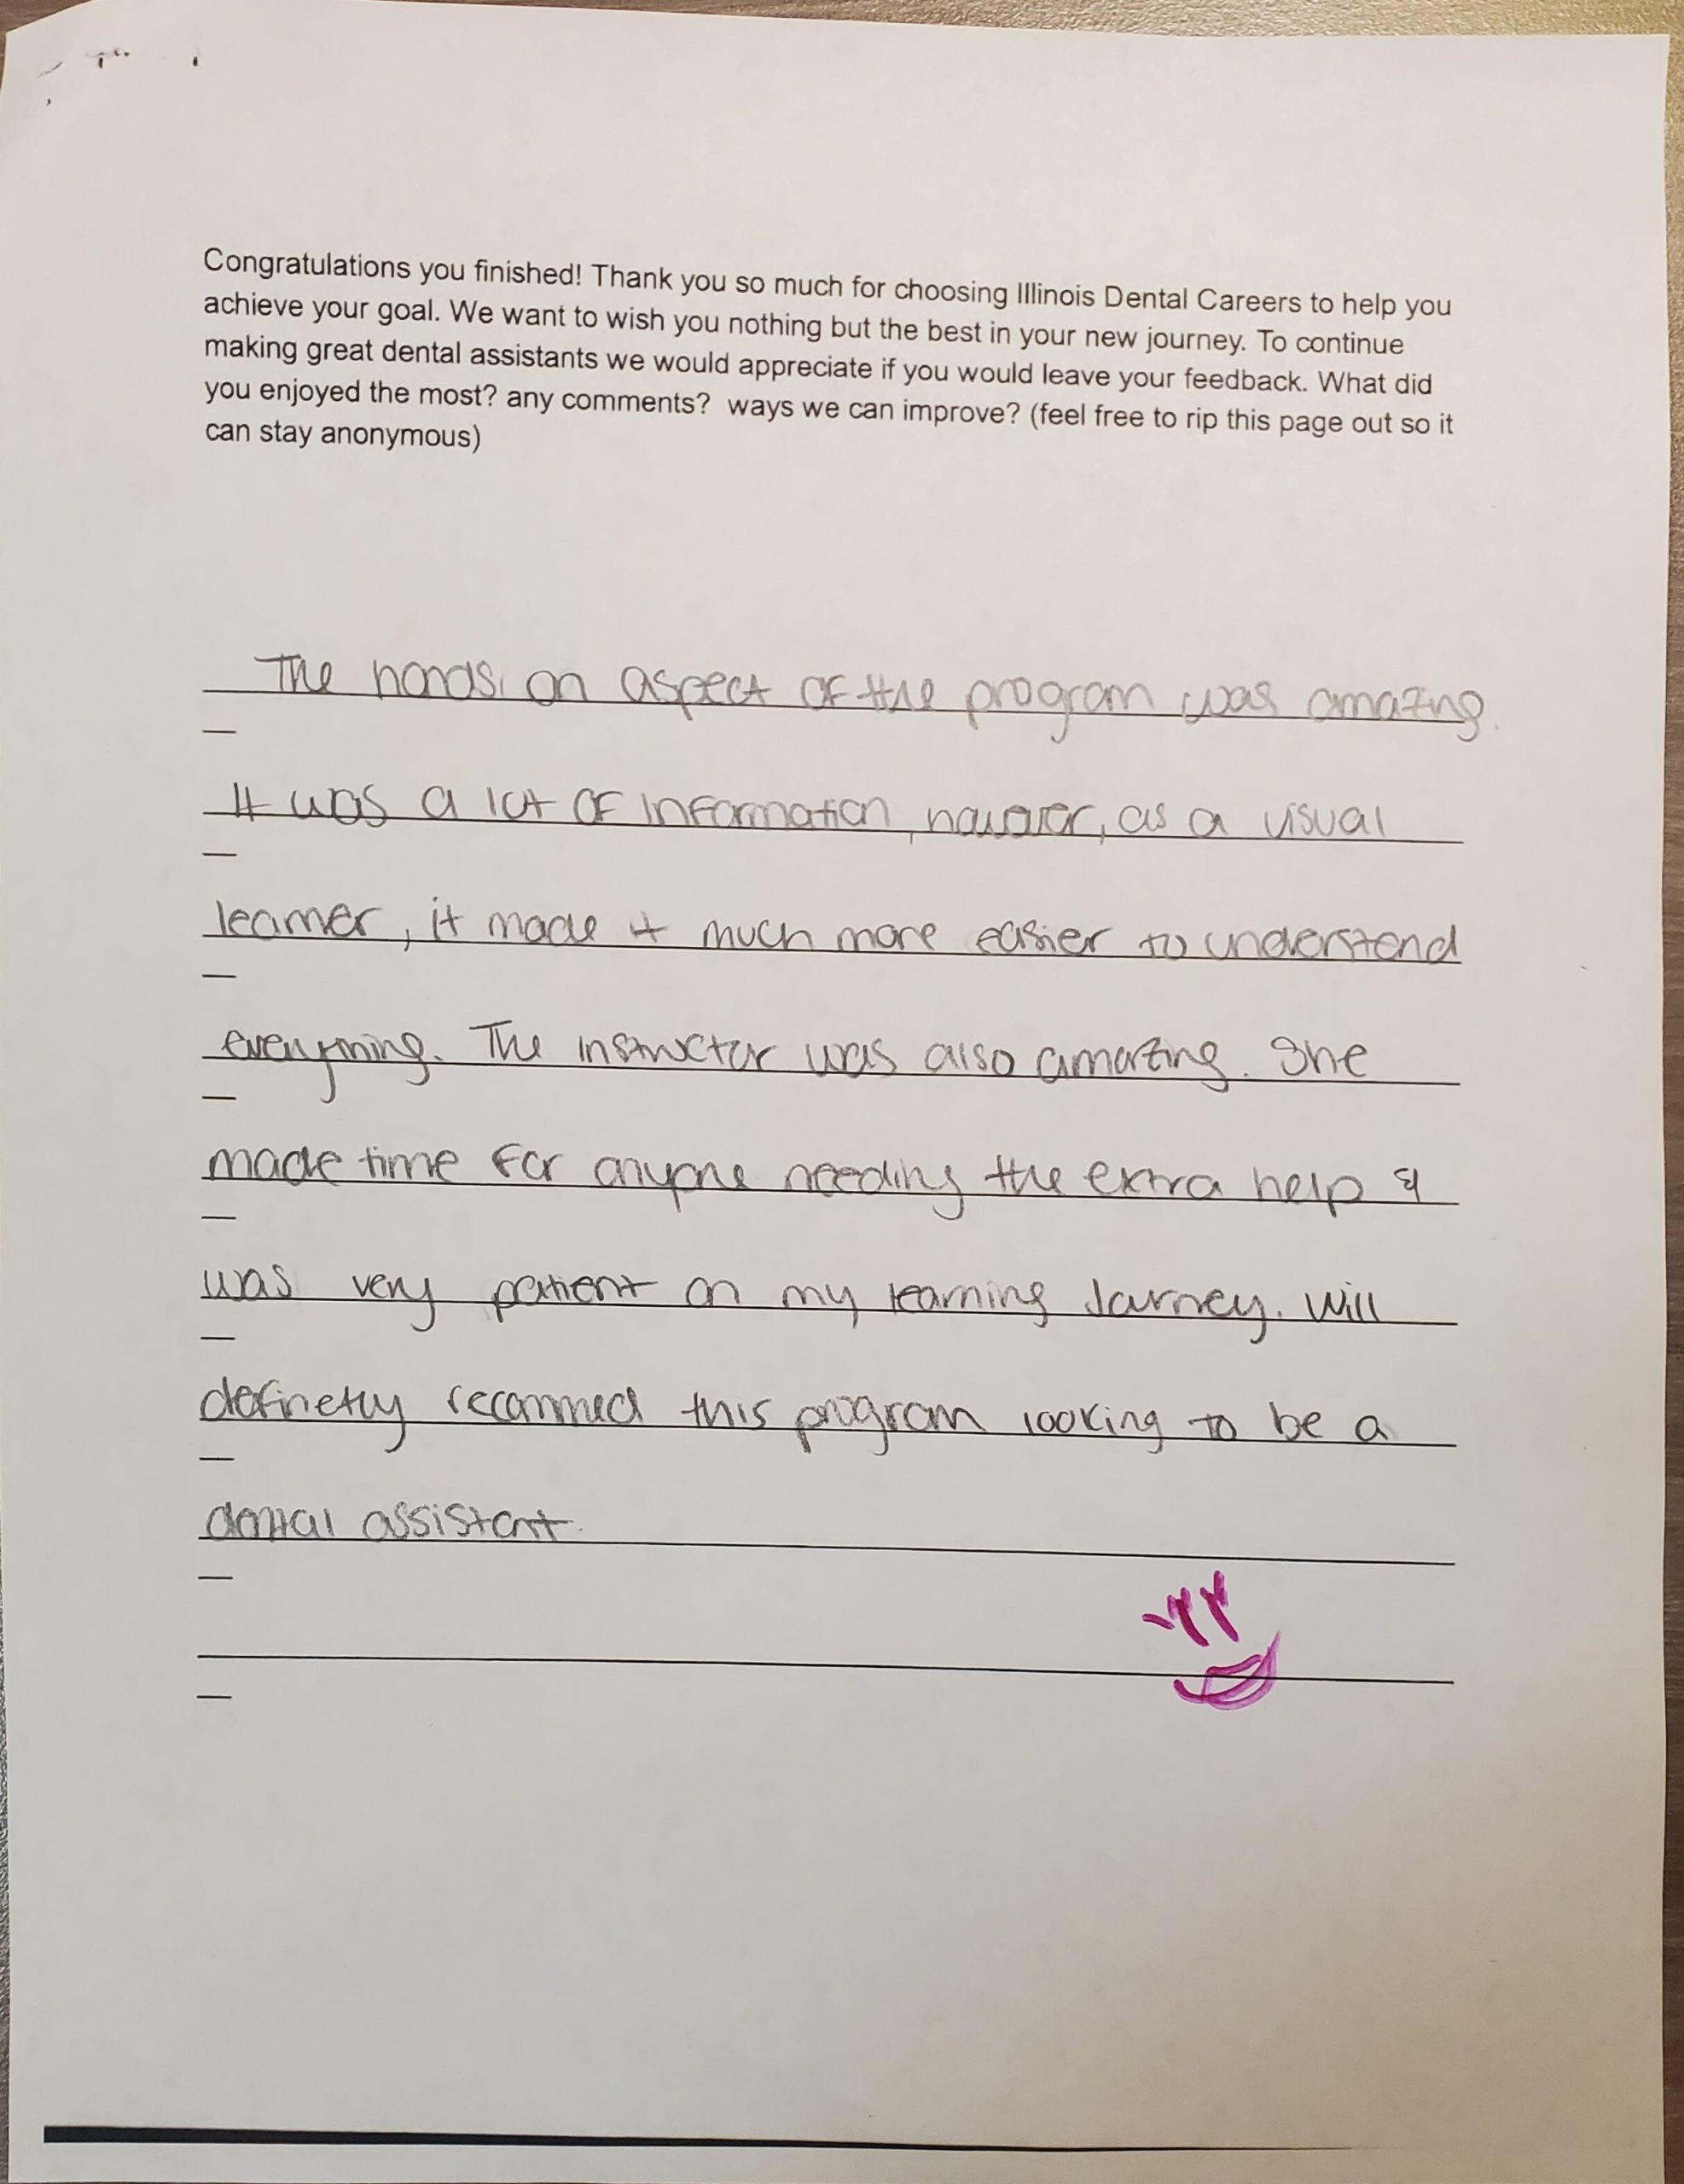 Congratulations you finished! Thank you so much for choosing Illinois Dental Careers to help you
achieve your goal. We want to wish you nothing but the best in your new journey. To continue
making great dental assistants we would appreciate if you would leave your feedback. What did
you enjoyed the most? any comments? ways we can improve? (feel free to rip this page out so it
can stay anonymous)
The hands on aspect of the program was amazing.
It was a lot of information, however, as a visual
learner, it made it much more easier to understand
everything. The instructor was also amazing. She
made time for anyone needing the extra help &
was very patient on my learning Journey. Will
definetly recommed this program looking to be a
dental assistant.